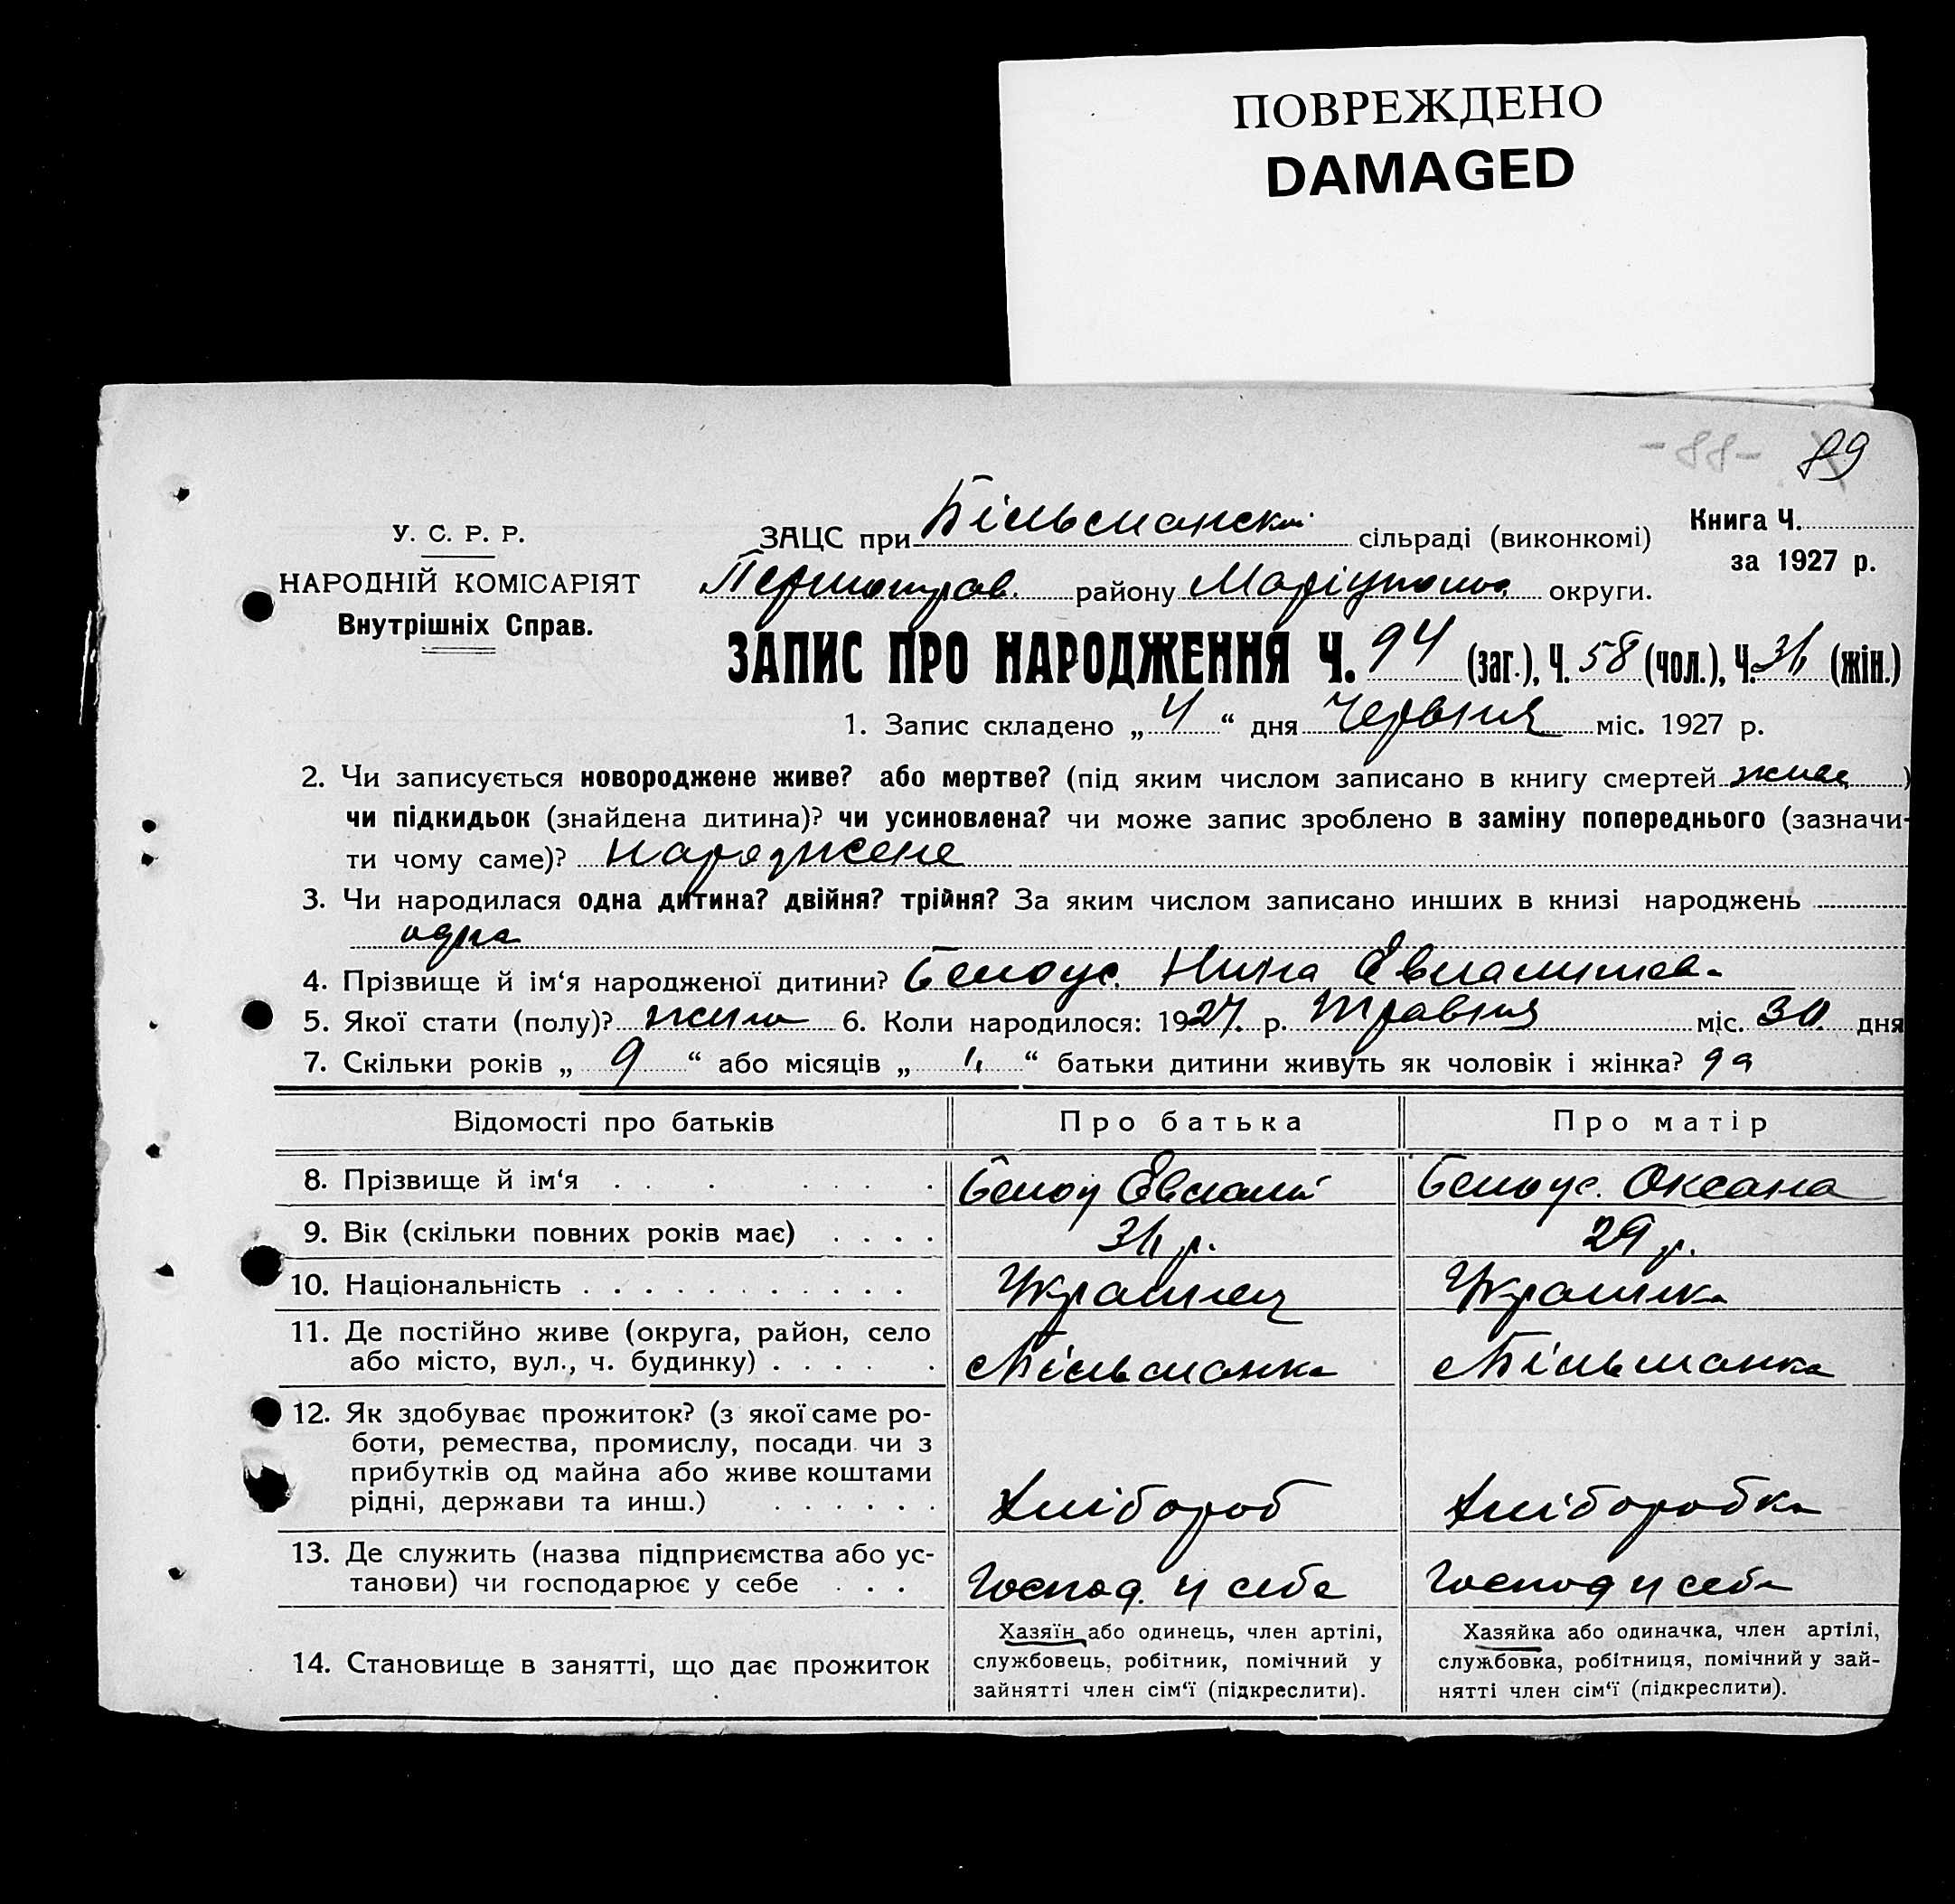 ПОВРЕЖДЕНО
DAMAGED
-88- 89
У. С. Р. Р.
НАРОДНІЙ КОМІСАРІЯТ
Внутрішніх Справ.
ЗАЦС при Більманскій сільраді (виконкомі)
Книга Ч.
за 1927 р.
Першотрав. району Маріупольс. округи.
ЗАПИС ПРО НАРОДЖЕННЯ Ч. 94 (заг.), Ч. 58 (чол.), Ч. 36 (жін.)
1. Запис складено „ 4 “ дня Червня міс. 1927 р.
2. Чи записується новороджене живе? або мертве? (під яким числом записано в книгу смертей живе )
чи підкидьок (знайдена дитина)? чи усиновлена? чи може запис зроблено в заміну попереднього (зазначи-
ти чому саме)? народжене
3. Чи народилася одна дитина? двійня? трійня? За яким числом записано инших в книзі народжень
одна
4. Прізвище й ім‘я народженої дитини? Белоус Нина
5. Якої стати (полу)? жино 6. Коли народилося: 1927. р. Травня міс. 30. дня
7. Скільки років „ 9 “ або місяців „ “ батьки дитини живуть як чоловік і жінка?
Відомості про батьків Про батька Про матір
8. Прізвище й ім‘я . . . . . . . Белоу Белоус. Оксана
9. Вік (скільки повних років має) . . . . 36 р. 29 р.
10. Національність . . . . . . . . . . . Украинец Украинка
11. Де постійно живе (округа, район, село
або місто, вул., ч. будинку) . . . . . Більманка Більманка
12. Як здобуває прожиток? (з якої саме ро-
боти, ремества, промислу, посади чи з
прибутків од майна або живе коштами
рідні, держави та инш.) . . . . . . Хлібороб Хліборобка
13. Де служить (назва підприємства або ус-
танови) чи господарює у себе . . . Господ. у себе Господ у себе
14. Становище в занятті, що дає прожиток
Хазяїн або одинець, член артілі,
службовець, робітник, помічний у
зайнятті член сім‘ї (підкреслити).
Хазяйка або одиначка, член артілі,
службовка, робітниця, помічний у зай-
нятті член сім‘ї (підкреслити).